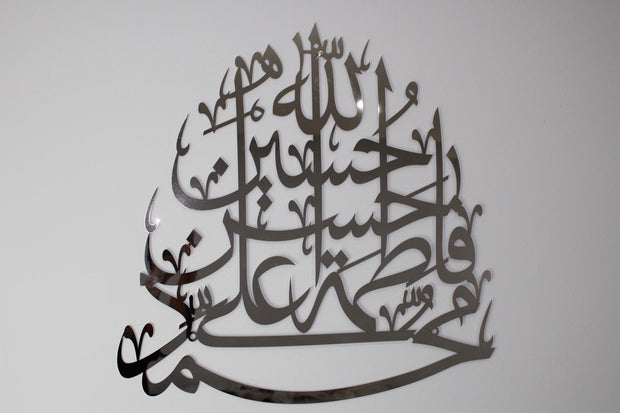 الله
حسين
حسن
فاطمة
علي
محمد